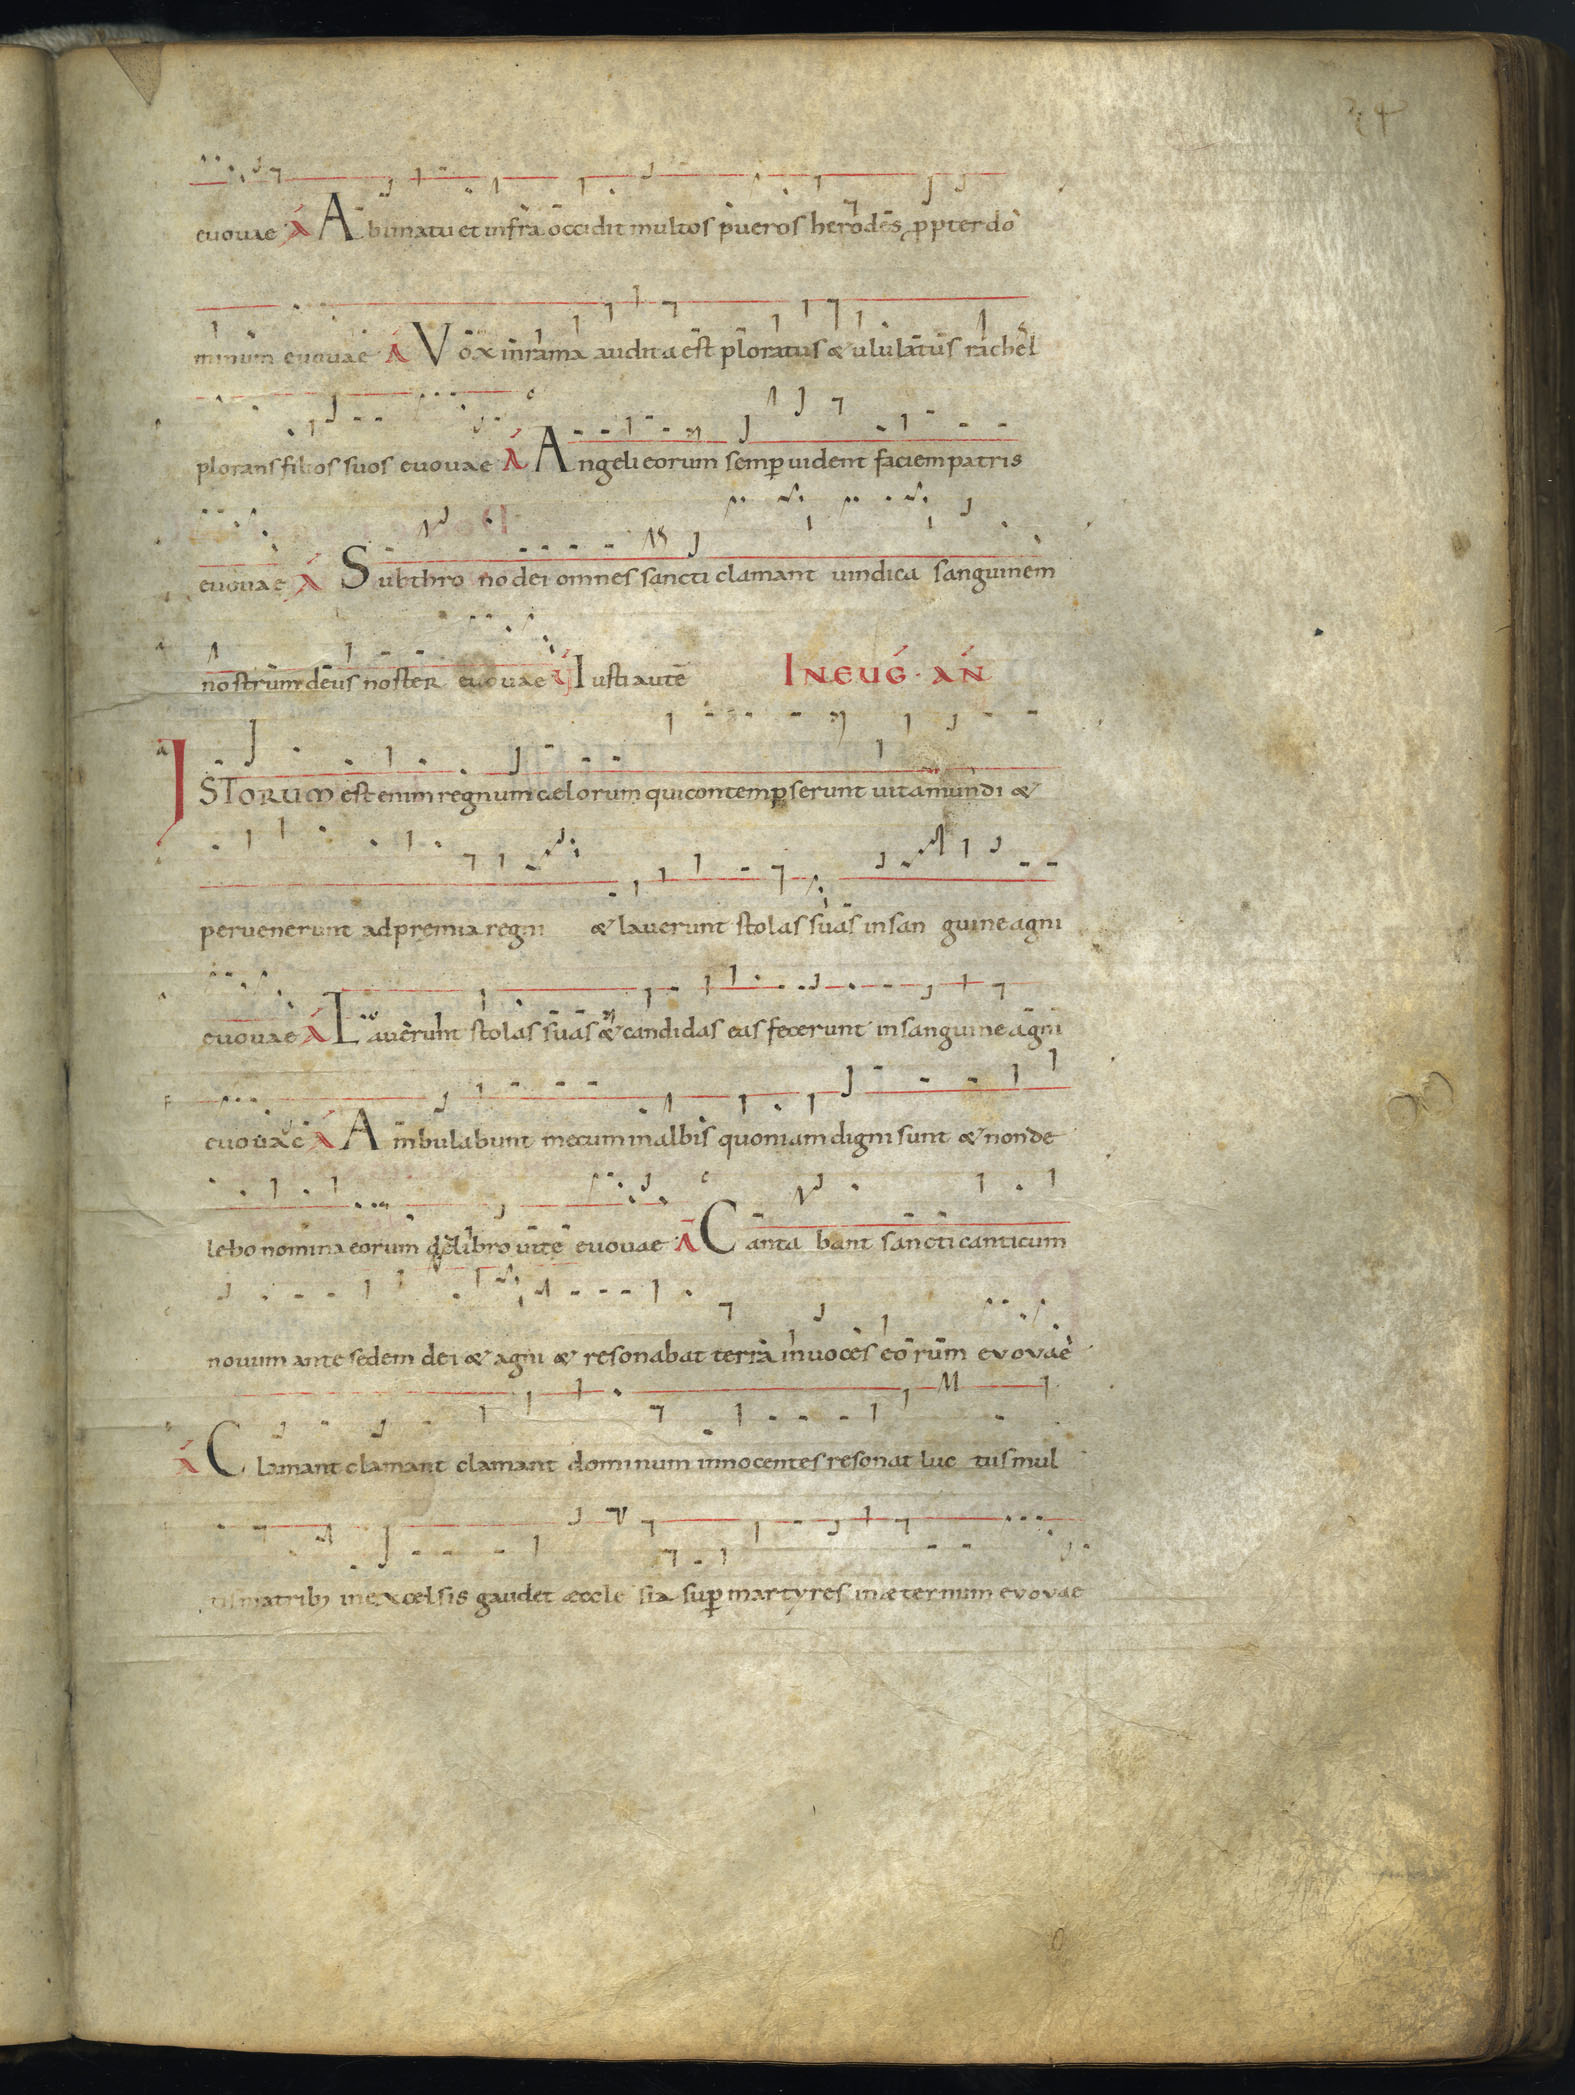 34
euouae A Abimatu et infra occidit multos pueros herodes, propter do
minum euouae A Vox in rama audita est ploratus & ululatus rachel
plorans filios suos euouae A Angeli eorum semp uident faciem patris
euouae A Subthro no dei omnes sancti clamant uindica sanguinem
nostrum deus noster euouae Iusti autē IN EUG · AN
ISTORUM est enim regnum caelorum qui contempserunt uitam mundi &
peruenerunt ad premia regni & lauerunt stolas suas in san guine agni
euouae A Lauerunt stolas suas & candidas eas fecerunt in sanguine agni
euouae A Ambulabunt mecum in albis quoniam digni sunt & non de
lebo nomina eorum de libro uite euouae A Canta bant sancti canticum
nouum ante sedem dei & agni & resonabat terra in uoces eo rum evovae
A Clamant clamant clamant dominum innocentes resonat luc tus mul
tis matrib; in excelsis gaudet aeccle sia sup martyres in aeternum evovae